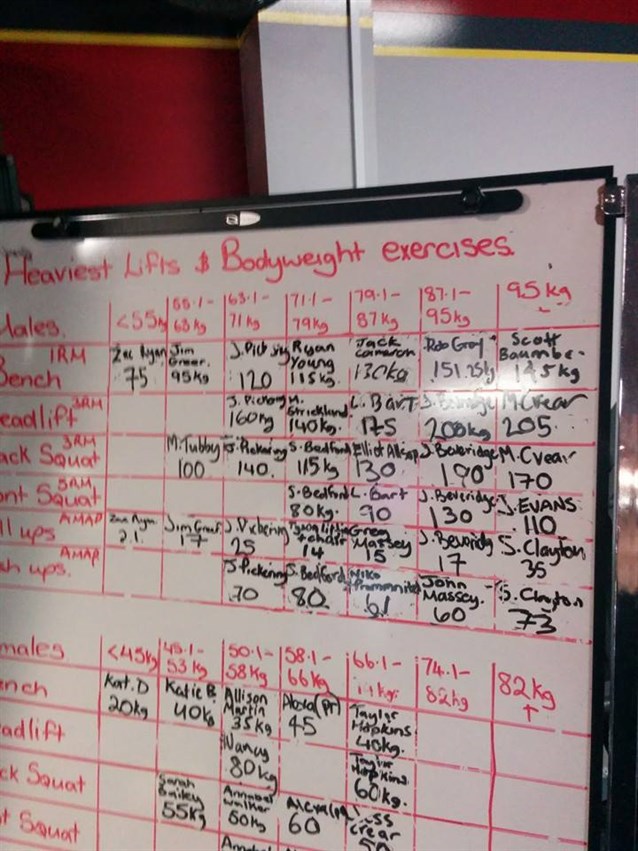 Heaviest Lifts & Bodyweight exercises
Males. <55kg 55.1-63kg 63.1-71kg 71.1-79kg 79.1-87kg 87.1-95kg 95kg
Bench 1RM Zac Ryan 75 Jim Greer. 95kg 120 Ryan Young 115kg. Jack Cameron 130kg Rob Gray 151.25kg Scott 145kg
eadlift 3RM J. Pickering 160kg M. Strickland 140kg. L. BART 175 J. Beveridge 200kg M. Cvear 205
ack Squat 3RM M. Tubby 100 J. Pickering 140. S. Bedford 115kg Elliot Allsop 130 J. Beveridge M. Cvear 170
ont Squat 5RM S. Bedford 80kg. L. Bart 90 J. Beveridge 130 J. EVANS 110
ll ups AMAP Zac Ryan 21. Jim Greer 17 J. Pickering 25 14 Greg Massey 15 J. Beveridge 17 S. Clayton 35
sh ups. AMAP J. Pickering 70 S. Bedford 80 Niko 61 John Massey. 60 S. Clayton 73
males <45kg 45.1-53kg 50.1-58kg 58.1-66kg 66.1- 74.1-82kg 82kg +
nch Kat. D 20kg Katie B. 40kg Allison Martin 35kg 45 Taylor Hopkins 40kg.
adlift Nancy 80kg Taylor Hopkins 60kg.
ck Squat Sarah Bailey 55kg Annabel Walker 50kg 60
t Squat